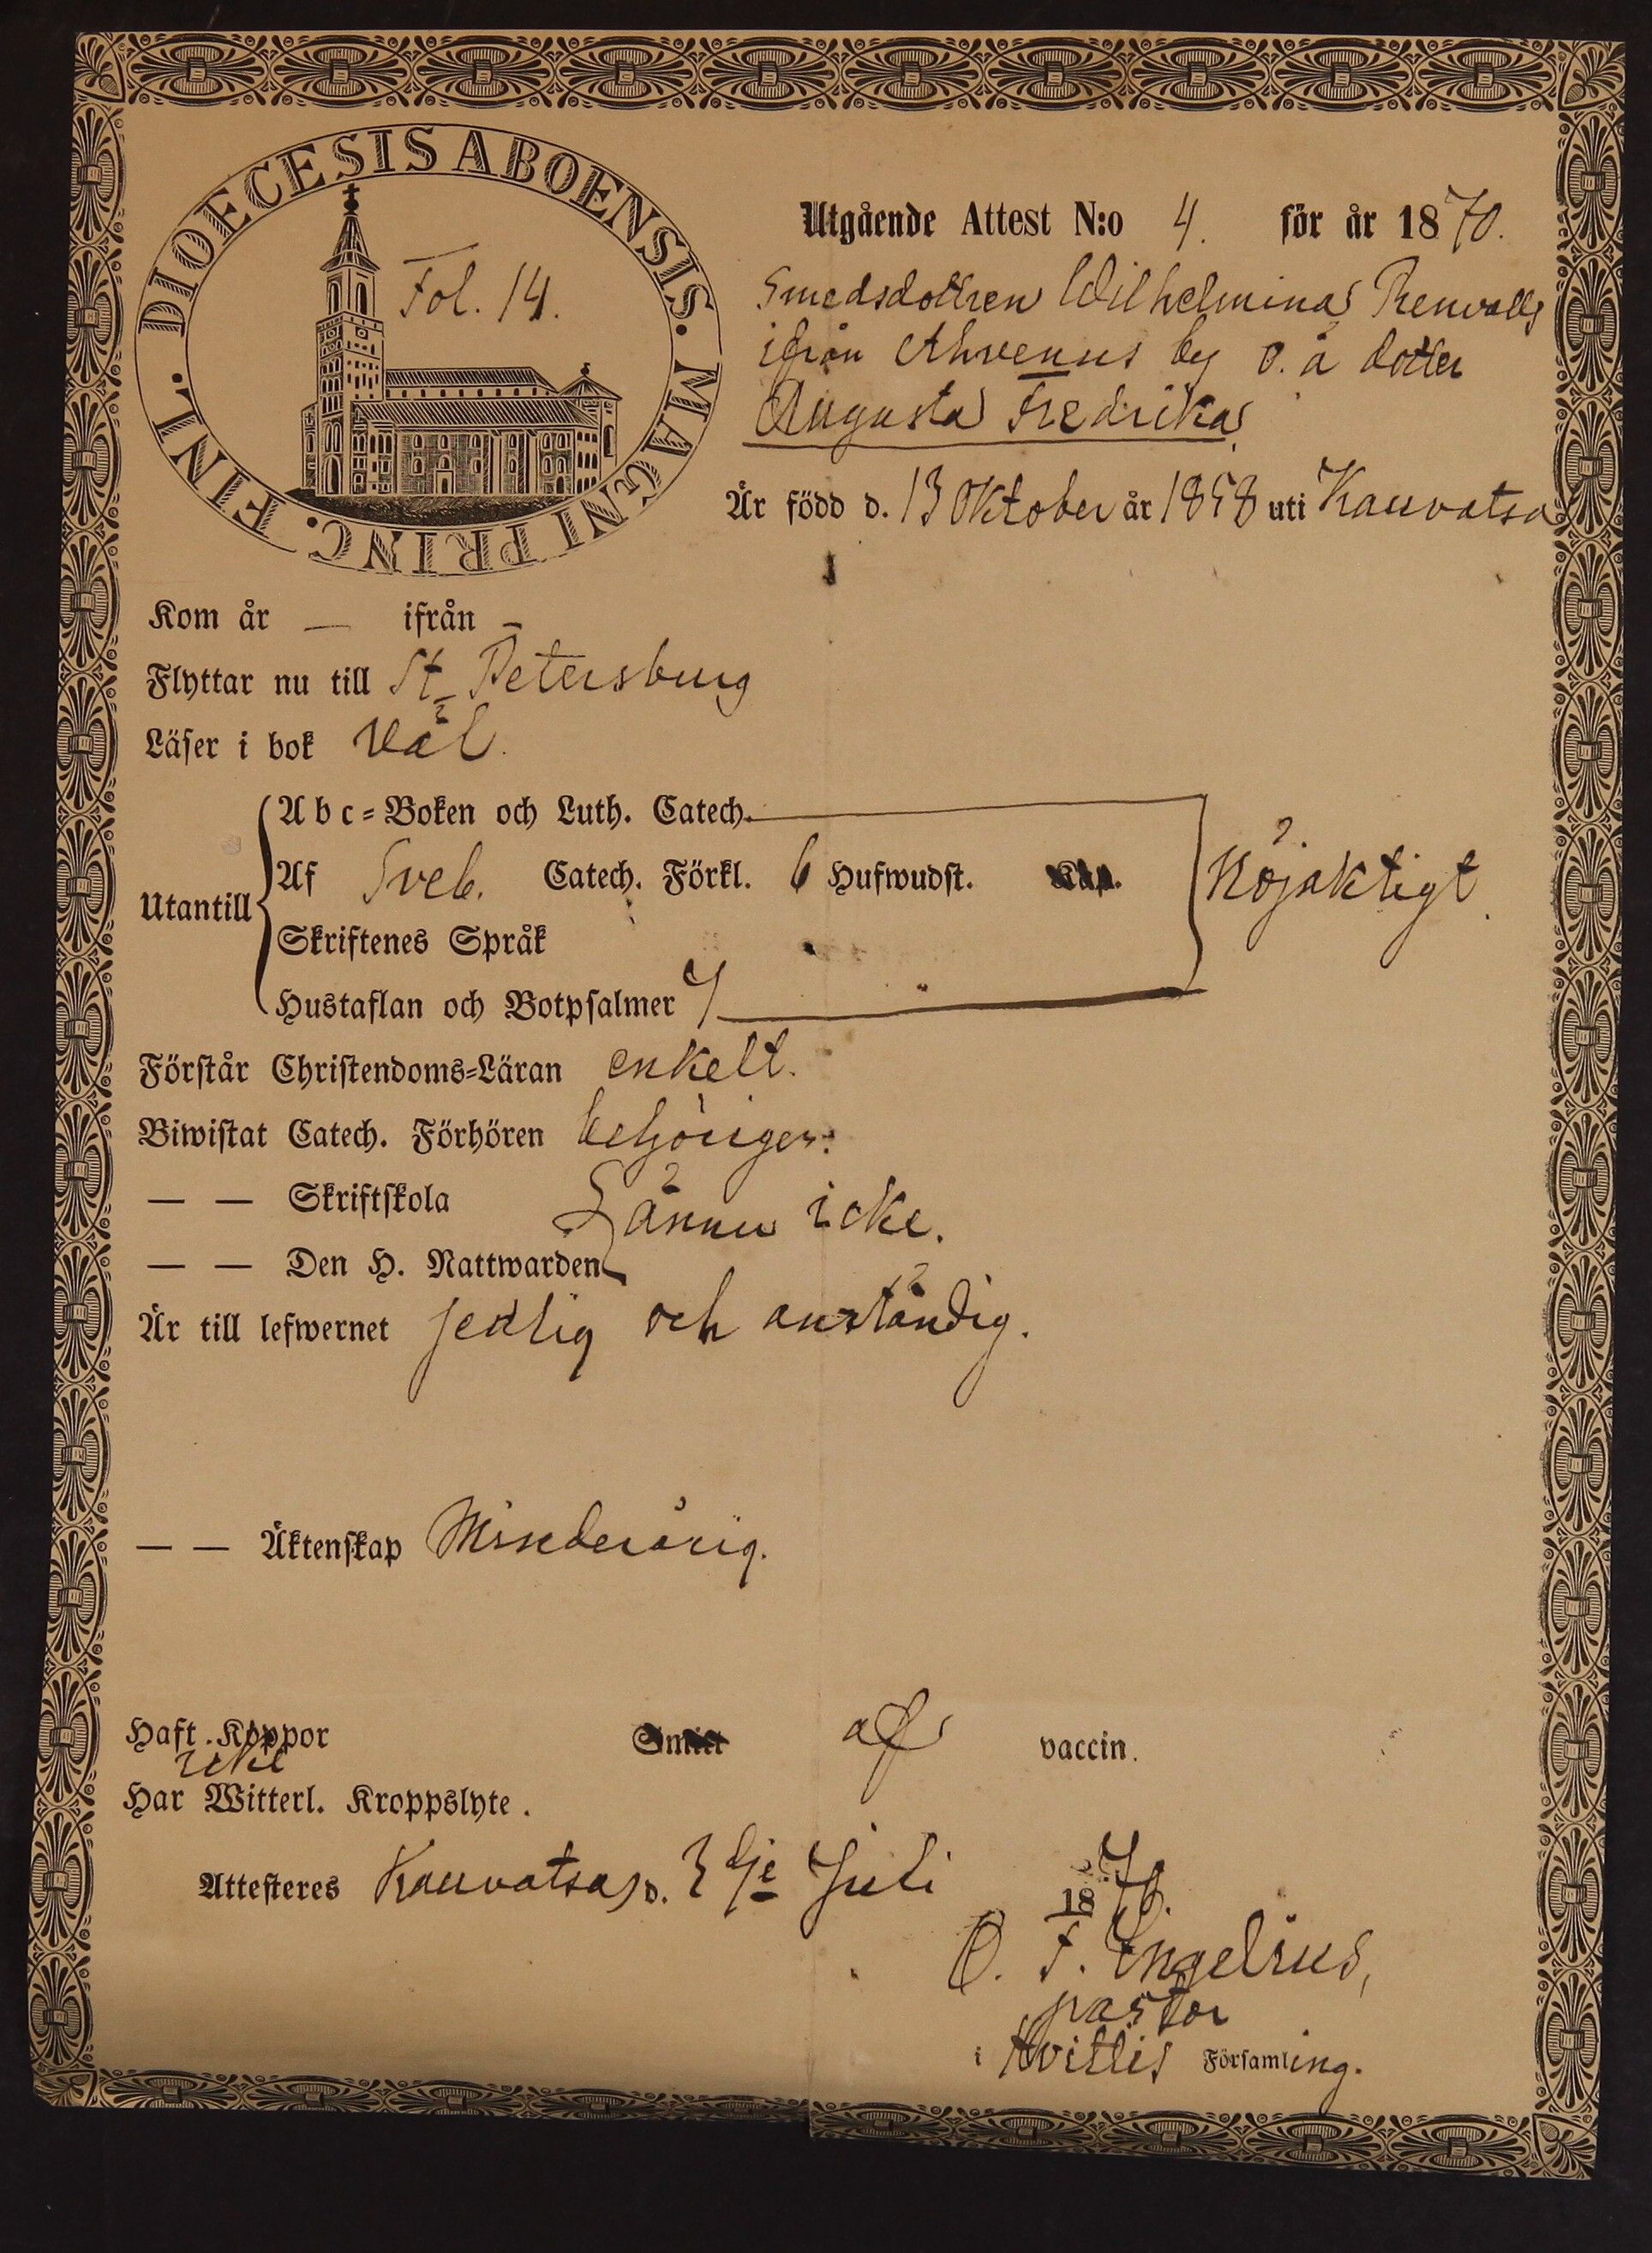 DIOECESIS ABOENSIS. MAGNI PRINC. FINL.
Fol. 14.
Utgående Attest N:o 4. för år 1870.
Smedsdottren Wilhelmina Renvalls
ifrån Ahvenus by o. ä dotter
Augusta Fredrika
Är född d. 13 Oktober år 1858 uti Kauvatsa
Kom år — ifrån –
Flyttar nu till St. Petersburg
Läser i bok väl.
Utantill
Abc-Boken och Luth. Catech.
Af Sveb. Catech. Förkl. 6 Hufwudst.
Skriftenes Språk
Hustaflan och Botpsalmer 7
Nöjaktigt
Förstår Christendoms-Läran enkelt.
Biwistat Catech. Förhören behörigen.
— — Skriftskola
ännu icke.
— — Den H. Nattwarden
Är till lefwernet sedlig och anständig.
— — Äktenskap Minderårig.
Haft Koppor vaccin.
icke
Har Witterl. Kroppslyte.
Attesteres Kauvatsa, d. 3dje Juli 1870.
O. F. Engelius,
pastor
i Hvittis Församling.